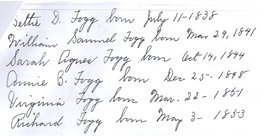 Lettie D. Fogg born July 11-1838
William Samuel Fogg born Mar. 29, 1841
Sarah Agnes Fogg born Oct 14, 1844
Annie B. Fogg born Dec 25-1848
Virginia Fogg born Mar. 22-1851
Richard Fogg born May 3-1853